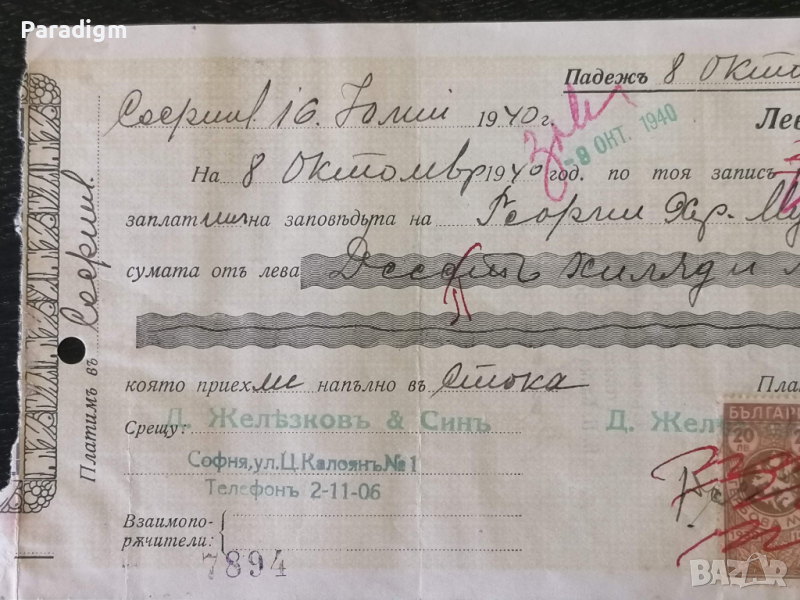 Paradigm
Падежъ 8 Окто
София 16. Юлий 1940 г. Лев
-8 ОКТ. 1940
На 8 Октомври 1940 год. по тоя записъ
заплатим на заповѣдьта на Георги Хр.
сумата отъ лева Десеть хиляди
която приехме напълно въ Стока Пла
Д. Желѣзковъ & Синъ Д. Жел
Срещу:
София, ул. Ц. Калоянъ № 1
Телефонъ 2-11-06
Взаимопо-
рѫчители:
7894
Платимъ въ София.
БЪЛГАР
20
BAZAR